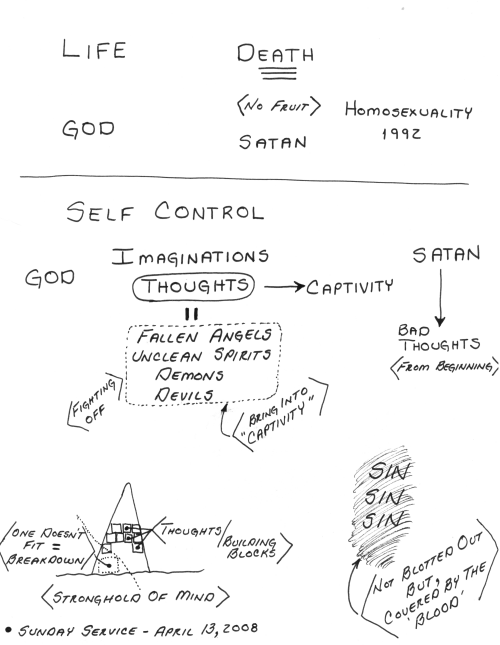 LIFE
DEATH
<NO FRUIT>
HOMOSEXUALITY
1992
GOD
SATAN
SELF CONTROL
IMAGINATIONS
SATAN
GOD
THOUGHTS
CAPTIVITY
FALLEN ANGELS
UNCLEAN SPIRITS
DEMONS
DEVILS
BAD
THOUGHTS
<FROM BEGINNING>
<FIGHTING
OFF
<BRING INTO
"CAPTIVITY">
SIN
SIN
SIN
<ONE DOESNT
FIT =
BREAKDOWN>
<THOUGHTS/
BUILDING
BLOCKS>
<STRONGHOLD OF MIND>
<NOT BLOTTED OUT
BUT,
COVERED BY THE
'BLOOD'>
• SUNDAY SERVICE - APRIL 13, 2008